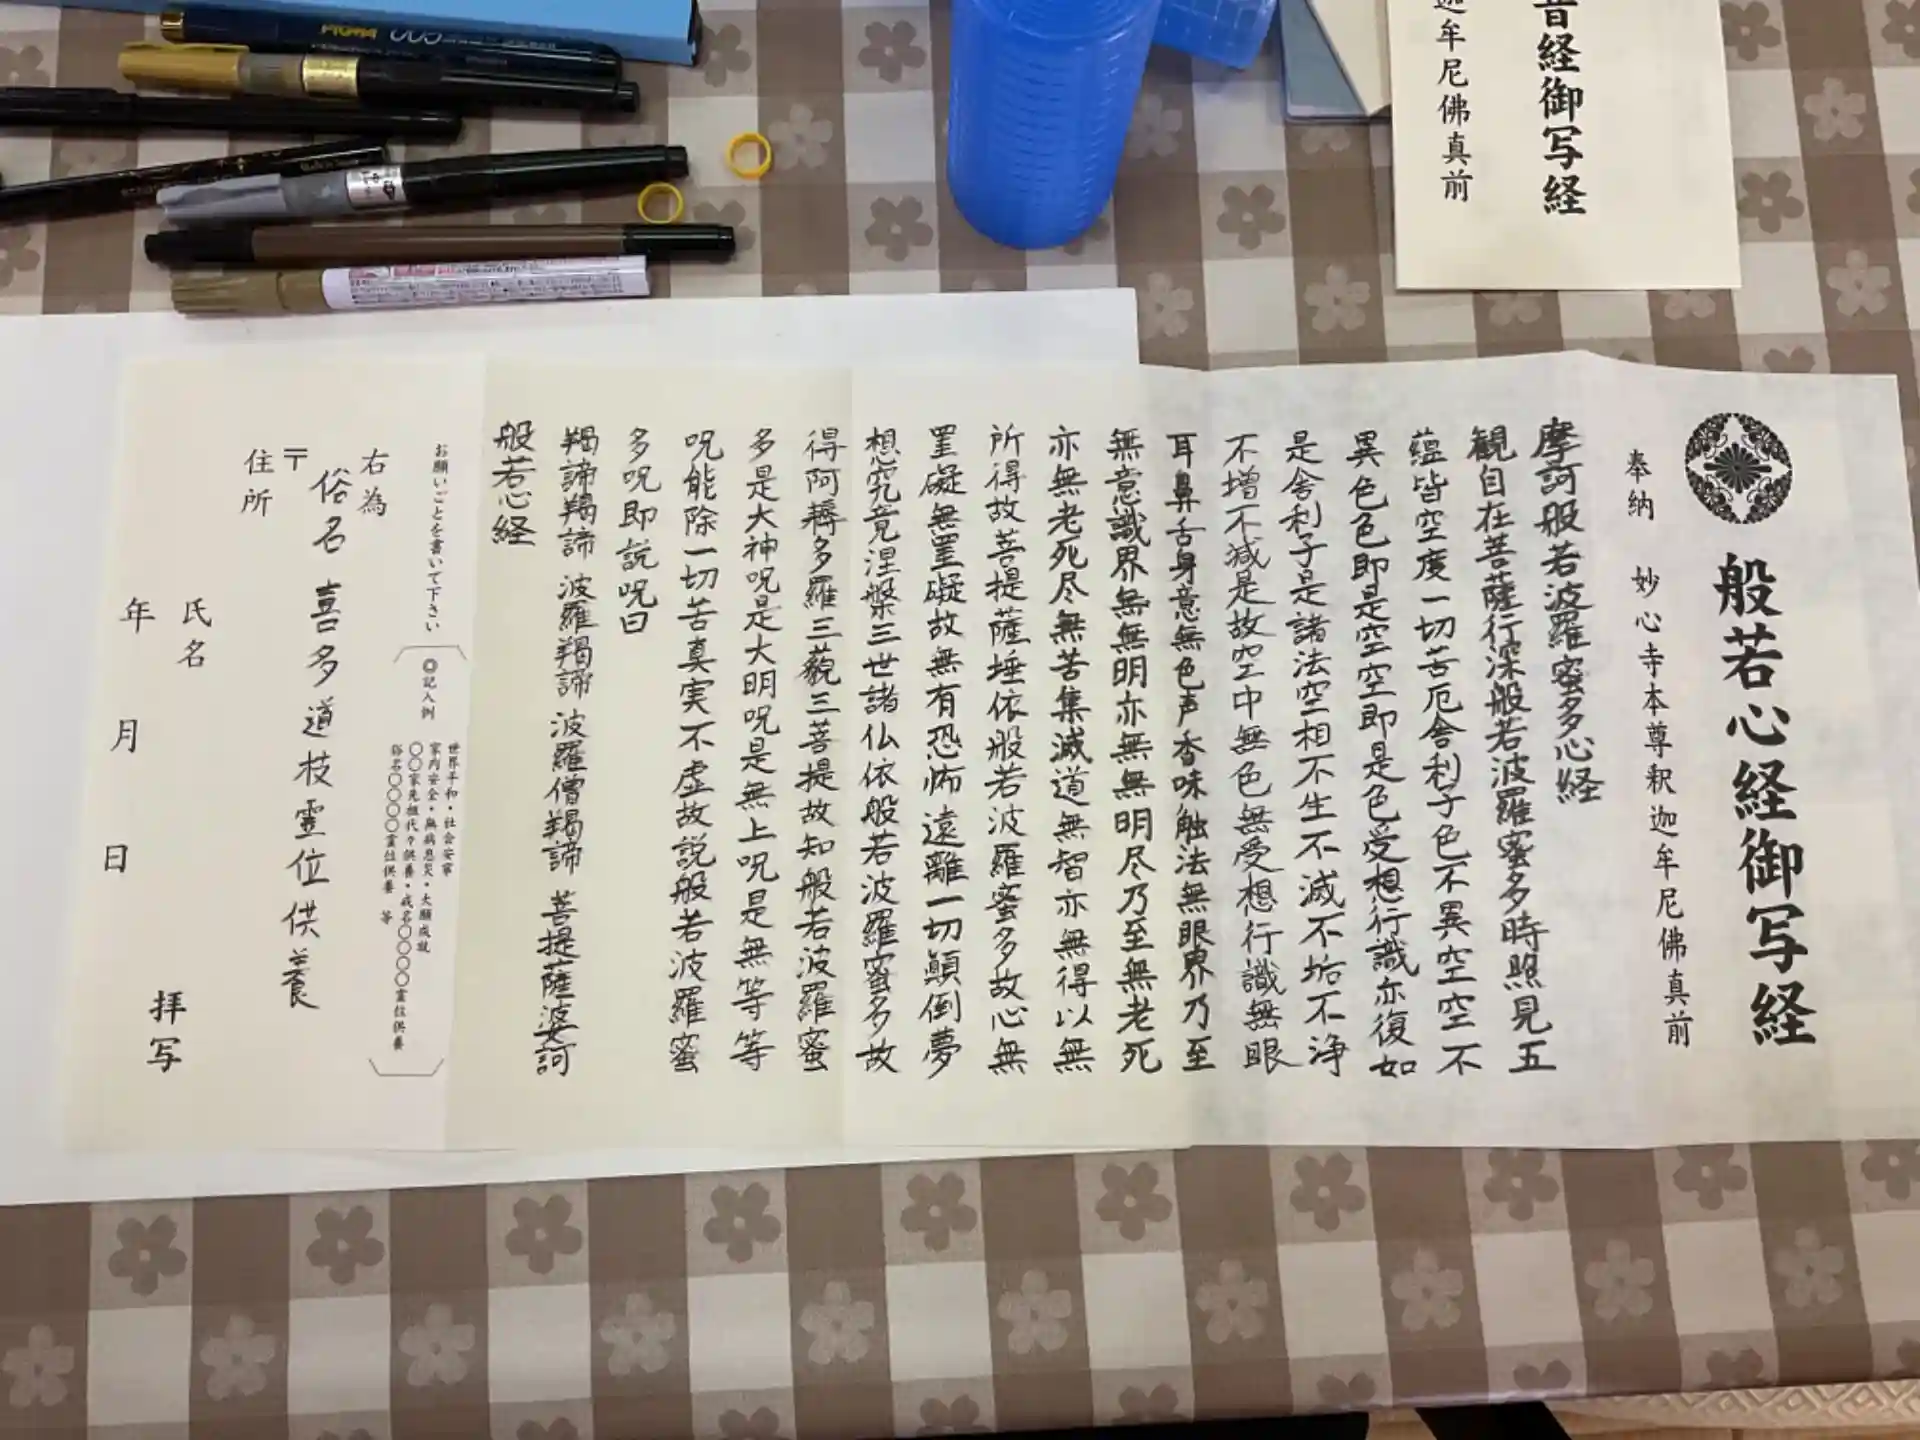 般若心経御写経
奉納 妙心寺本尊釈迦牟尼佛真前
摩訶般若波羅蜜多心経
観自在菩薩行深般若波羅蜜多時照見五
蘊皆空度一切苦厄舎利子色不異空空不
異色色即是空空即是色受想行識亦復如
是舎利子是諸法空相不生不滅不垢不浄
不増不減是故空中無色無受想行識無眼
耳鼻舌身意無色声香味触法無眼界乃至
無意識界無無明亦無無明尽乃至無老死
亦無老死尽無苦集滅道無智亦無得以無
所得故菩提薩埵依般若波羅蜜多故心無
罣礙無罣礙故無有恐怖遠離一切顛倒夢
想究竟涅槃三世諸仏依般若波羅蜜多故
得阿耨多羅三藐三菩提故知般若波羅蜜
多是大神呪是大明呪是無上呪是無等等
呪能除一切苦真実不虚故説般若波羅蜜
多呪即説呪曰
羯諦羯諦 波羅羯諦 波羅僧羯諦 菩提薩婆訶
般若心経
お願いごとを書いて下さい
◎記入例
世界平和・社会安寧
家内安全・無病息災・大願成就
〇〇家先祖代々供養・戒名〇〇〇〇霊位供養
俗名〇〇〇〇霊位供養 等
右為
俗名 喜多道枝霊位供養
〒
住所
氏名
拝写
年 月 日
音経御写経
迦牟尼佛真前
PIGMA 005